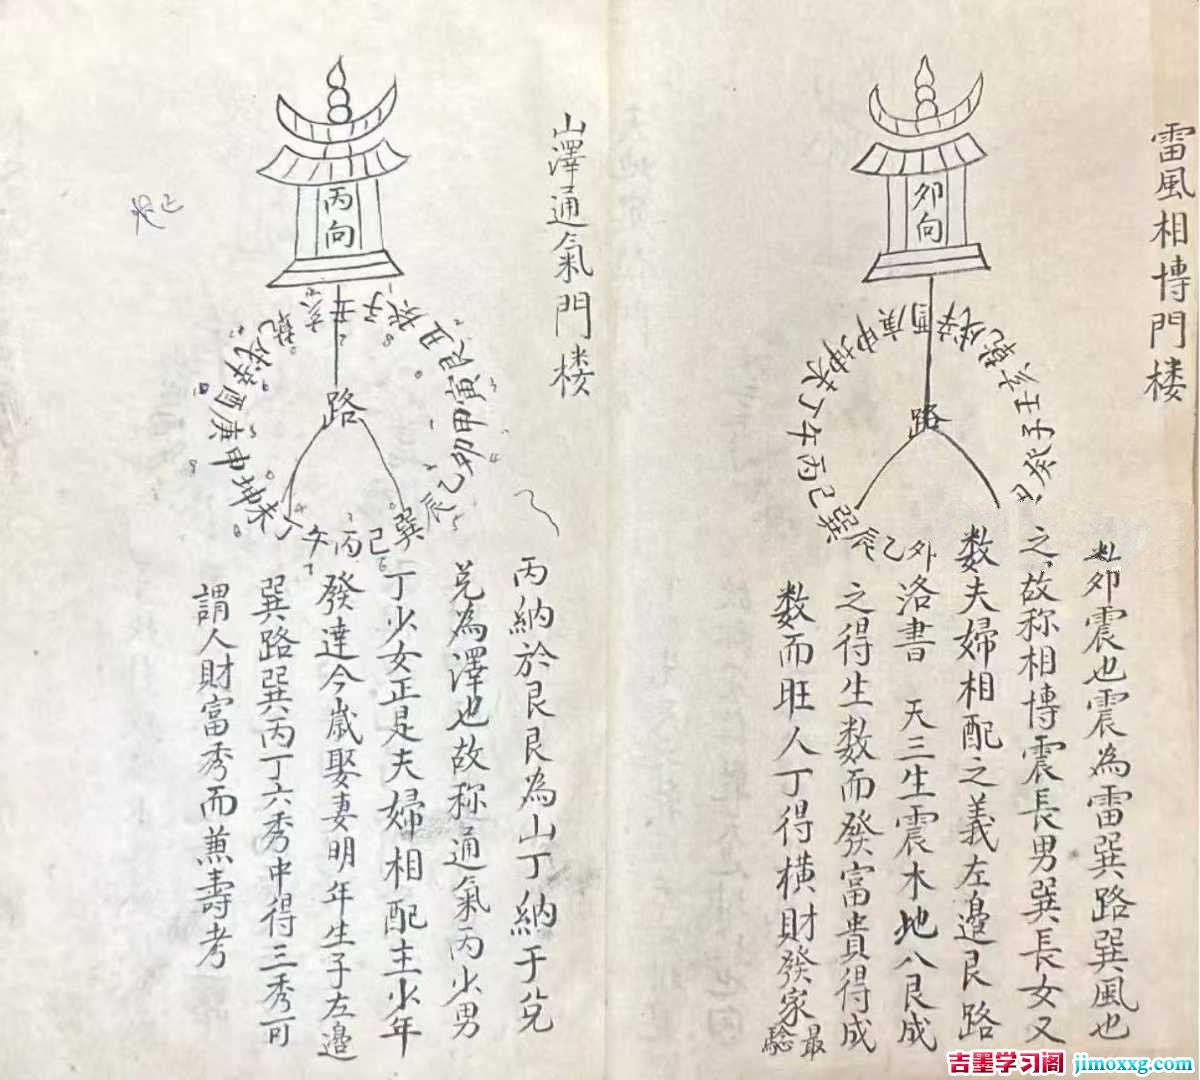 雷風相博門楼
卯向
路
庚申坤未丁午丙巳巽辰乙
乾亥壬子癸丑
數卯震也震為雷巽路巽風也
之故称相博震長男巽長女又
数夫婦相配之義左邉艮路
外洛書 天三生震木地八艮成
之得生数而發富貴得成
数而旺人丁得横財發家最驗
山澤通氣門楼
丙向
路
子癸丑艮寅甲卯乙辰巽巳丙午丁未坤申庚酉辛戌乾亥壬
丙納於艮艮為山丁納于兌
兌為澤也故称通氣丙少男
丁少女正是夫婦相配主少年
發達今歲娶妻明年生子左邉
巽路巽丙丁六秀中得三秀可
謂人財富秀而兼壽考
吉墨学习阁 jimoxxg.com